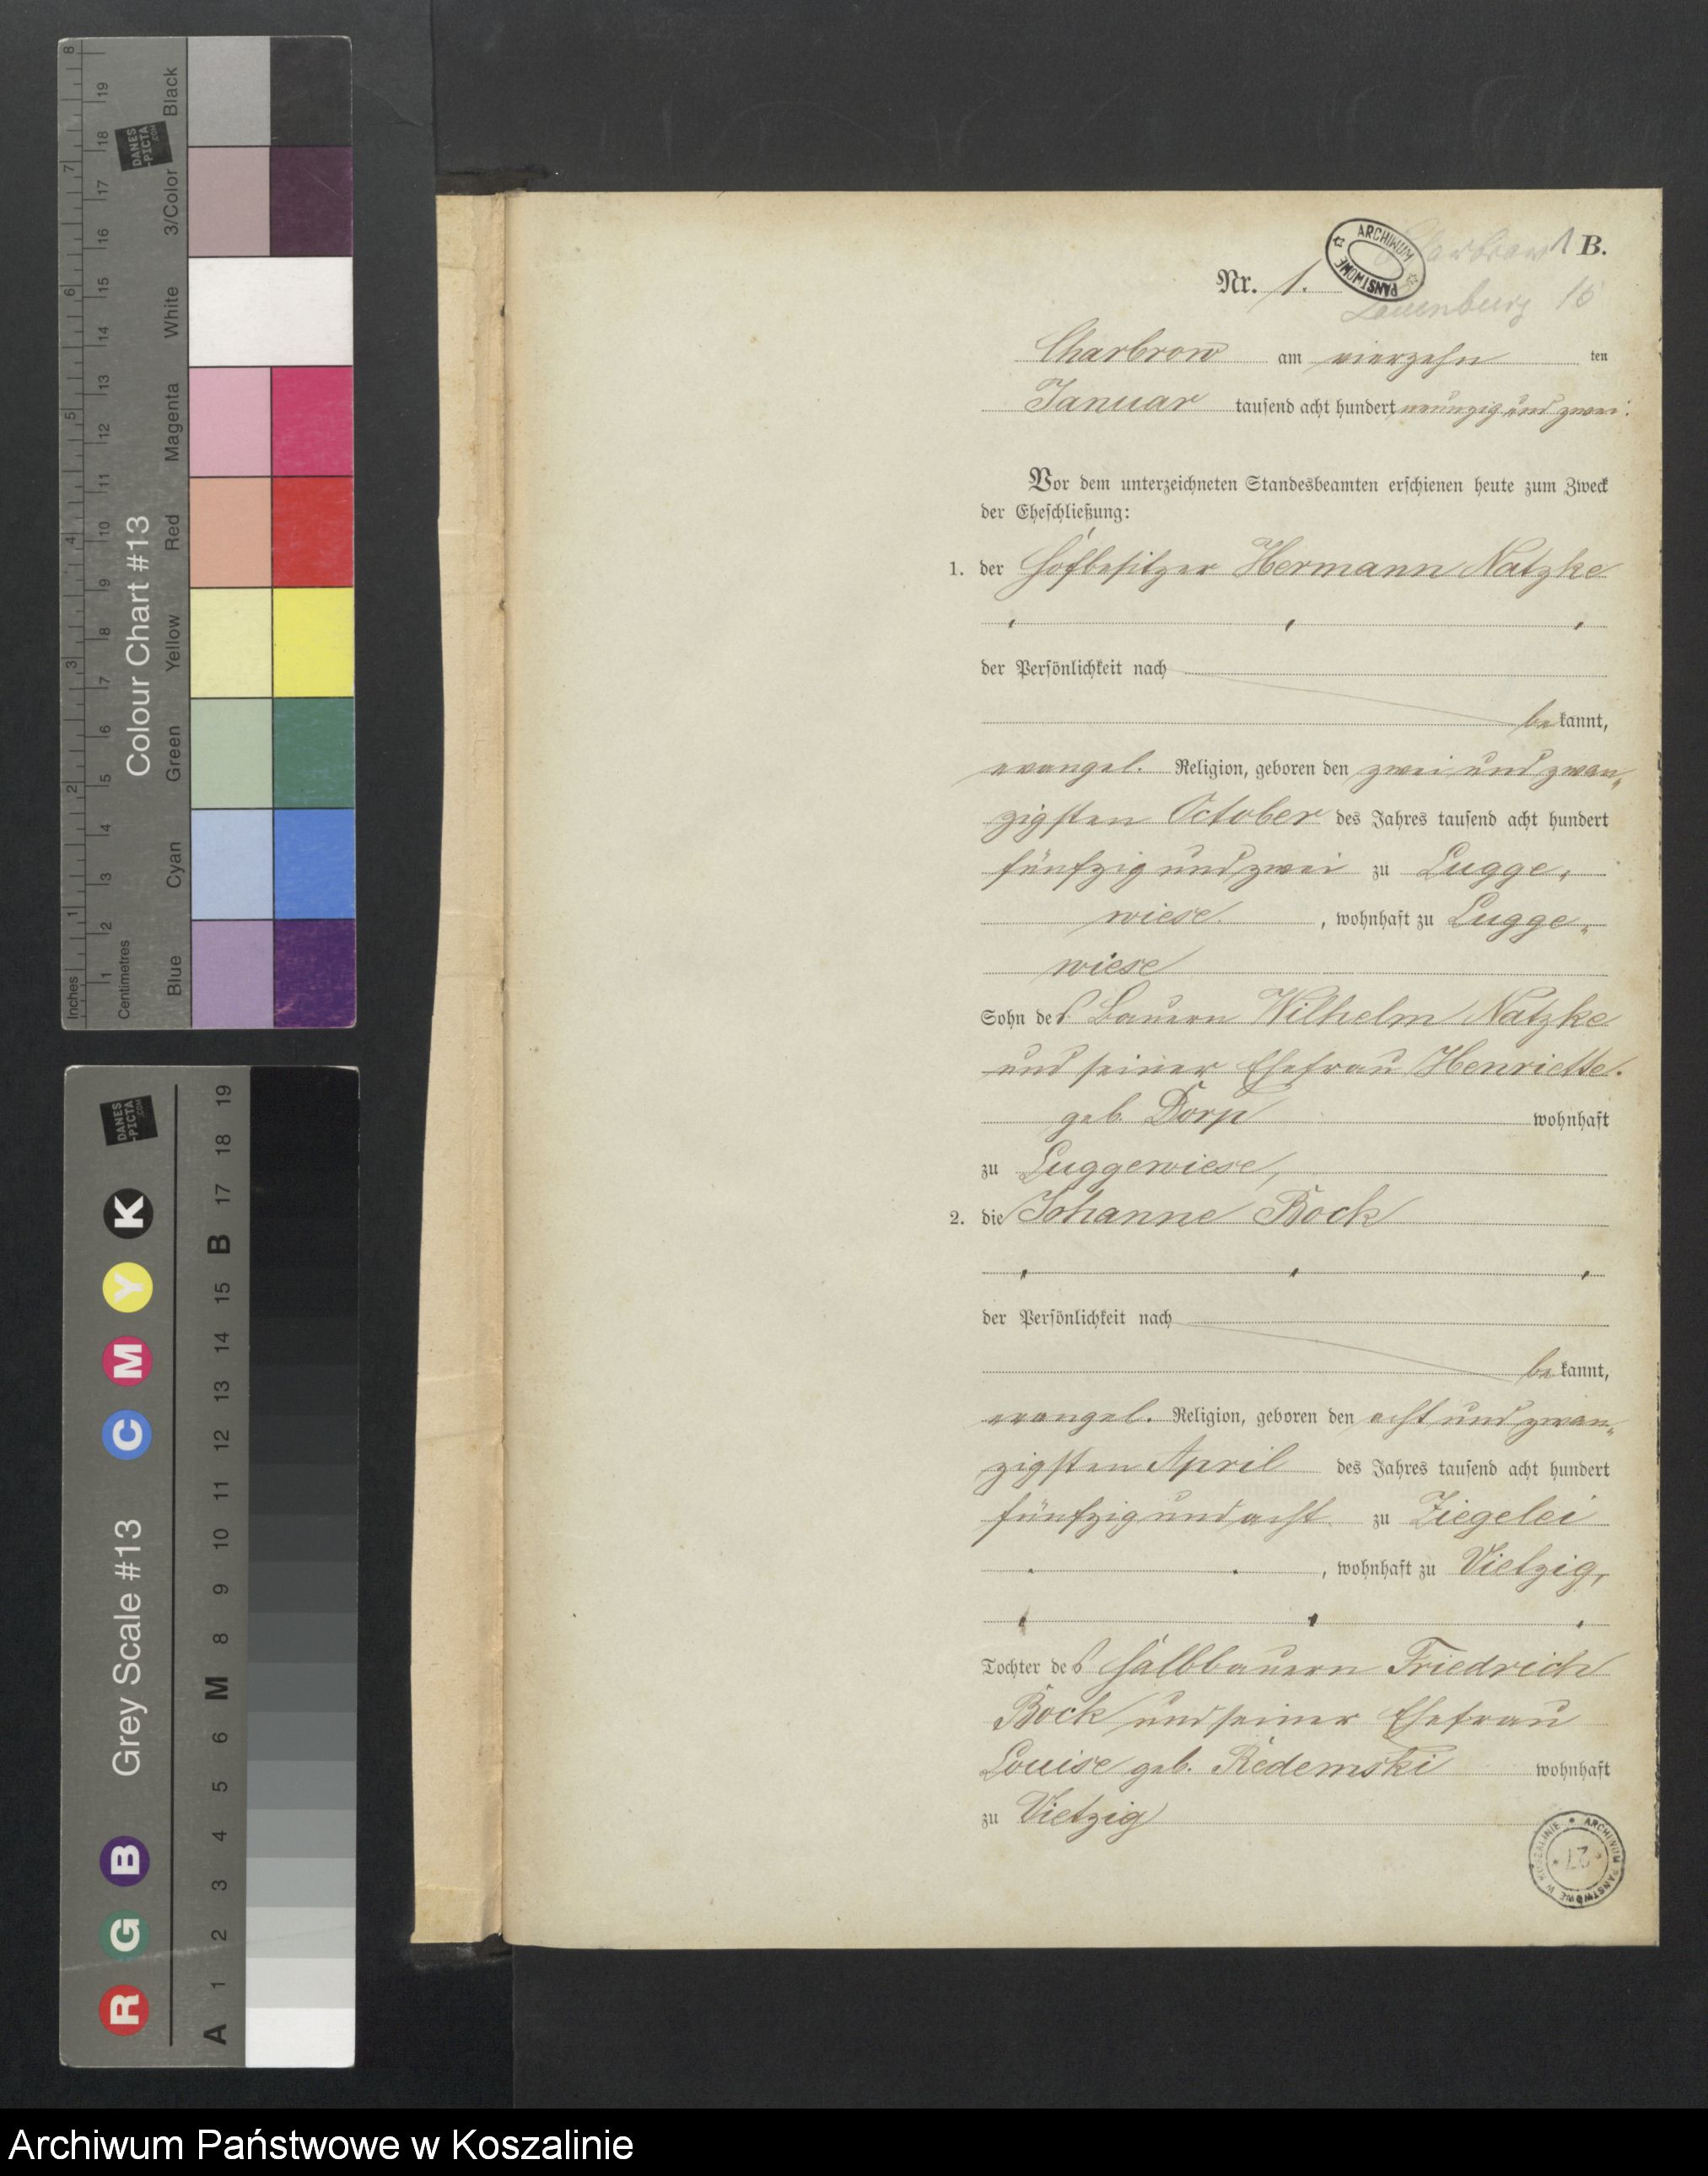 Inches 1 2 3 4 5 6 7 8
Centimetres 1 2 3 4 5 6 7 8 9 10 11 12 13 14 15 16 17 18 19
DANES
-PICTA
.COM
Colour Chart #13
Blue Cyan Green Yellow Red Magenta White 3/Color Black
DANES
-PICTA
.COM
Grey Scale #13
R G B C M Y K
A 1 2 3 4 5 6 M 8 9 10 11 12 13 14 15 B 17 18 19
B.
ARCHIWUM PAŃSTWOWE
Nr. 1.
Lauenburg
Charbrow am vierzehn ten
Januar tausend acht hundert neunzig und zwei.
Vor dem unterzeichneten Standesbeamten erschienen heute zum Zweck
der Eheschließung:
1. der Hofbesitzer Hermann Natzke
der Persönlichkeit nach
be kannt,
evangel. Religion, geboren den zwei und zwan„
zigsten October des Jahres tausend acht hundert
fünfzig und zwei zu Lugge„
wiese. , wohnhaft zu Lugge„
wiese
Sohn des Bauern Wilhelm Natzke
und seiner Ehefrau Henriette.
geb. Dorp wohnhaft
zu Luggewiese,
2. die Johanne Bock
der Persönlichkeit nach
be kannt,
evangel. Religion, geboren den acht und zwan„
zigsten April des Jahres tausend acht hundert
fünfzig und acht zu Ziegelei
, wohnhaft zu Vietzig,
Tochter des Halbbauern Friedrich
Bock und seiner Ehefrau
Louise geb. Redemski wohnhaft
zu Vietzig
ARCHIWUM PAŃSTWOWE W KOSZALINIE
27
Archiwum Państwowe w Koszalinie